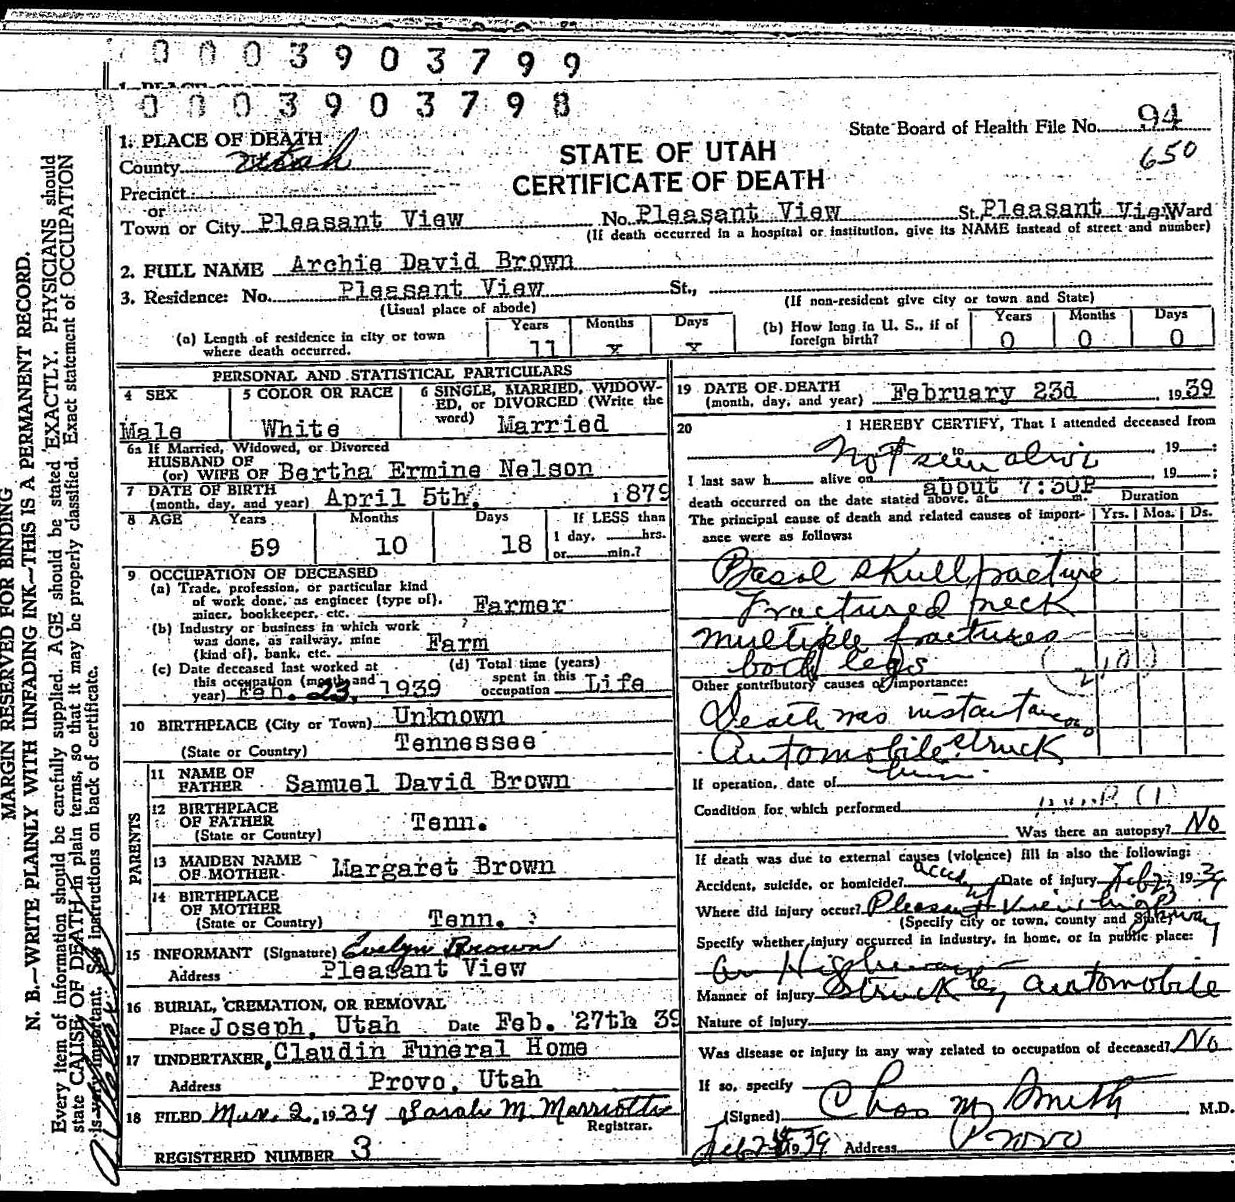 0003903799
0003903798
MARGIN RESERVED FOR BINDING
N. B.—WRITE PLAINLY WITH UNFADING INK—THIS IS A PERMANENT RECORD.
Every item of information should be carefully supplied. AGE should be stated EXACTLY. PHYSICIANS should
state CAUSE OF DEATH in plain terms, so that it may be properly classified. Exact statement of OCCUPATION
is very important. See instructions on back of certificate.
State Board of Health File No. 94
650
STATE OF UTAH
CERTIFICATE OF DEATH
1. PLACE OF DEATH
County Utah
Precinct
or
Town or City Pleasant View No. Pleasant View St. Pleasant Vie Ward
(If death occurred in a hospital or institution, give its NAME instead of street and number)
2. FULL NAME Archie David Brown
3. Residence: No. Pleasant View St.,
(Usual place of abode) (If non-resident give city or town and State)
(a) Length of residence in city or town where death occurred. Years 11 Months x Days x
(b) How long in U. S., if of foreign birth? Years 0 Months 0 Days 0
PERSONAL AND STATISTICAL PARTICULARS
4 SEX Male
5 COLOR OR RACE White
6 SINGLE, MARRIED, WIDOWED, or DIVORCED (Write the word) Married
6a If Married, Widowed, or Divorced
HUSBAND OF
(or) WIFE OF Bertha Ermine Nelson
7 DATE OF BIRTH
(month, day, and year) April 5th, 1879
8 AGE Years 59 Months 10 Days 18 If LESS than
1 day, hrs.
or min.?
9 OCCUPATION OF DECEASED
(a) Trade, profession, or particular kind
of work done, as engineer (type of),
miner, bookkeeper, etc. Farmer
(b) Industry or business in which work
was done, as railway, mine
(kind of), bank, etc. Farm
(c) Date deceased last worked at
this occupation (month and
year) Feb. 23, 1939
(d) Total time (years)
spent in this
occupation Life
10 BIRTHPLACE (City or Town) Unknown
(State or Country) Tennessee
PARENTS
11 NAME OF
FATHER Samuel David Brown
12 BIRTHPLACE
OF FATHER
(State or Country) Tenn.
13 MAIDEN NAME
OF MOTHER Margaret Brown
14 BIRTHPLACE
OF MOTHER
(State or Country) Tenn.
15 INFORMANT (Signature) Evelyn Brown
Address Pleasant View
16 BURIAL, CREMATION, OR REMOVAL
Place Joseph, Utah Date Feb. 27th 39
17 UNDERTAKER, Claudin Funeral Home
Address Provo, Utah
18 FILED Mar. 2, 1939 Sarah M. Marriotte
Registrar.
REGISTERED NUMBER 3
19 DATE OF DEATH
(month, day, and year) February 23d 1939
20 I HEREBY CERTIFY, That I attended deceased from
Not seen alive to , 19 ;
I last saw h alive on , 19 ;
death occurred on the date stated above, at about 7:30P m.
The principal cause of death and related causes of importance were as follows:
Duration
Yrs. Mos. Ds.
Basal skull fracture
Fractured neck
multiple fractures
both legs
210
Other contributory causes of importance:
Death was instantaneous
Automobile struck
him.
If operation, date of
Condition for which performed
Was there an autopsy? No
If death was due to external causes (violence) fill in also the following:
Accident, suicide, or homicide? accident Date of injury Feb 23 1939
Where did injury occur? Pleasant View highway
(Specify city or town, county and State)
Specify whether injury occurred in industry, in home, or in public place:
on Highway
Manner of injury Struck by automobile
Nature of injury
Was disease or injury in any way related to occupation of deceased? No
If so, specify
(Signed) Chas M Smith M.D.
1939 Address Provo